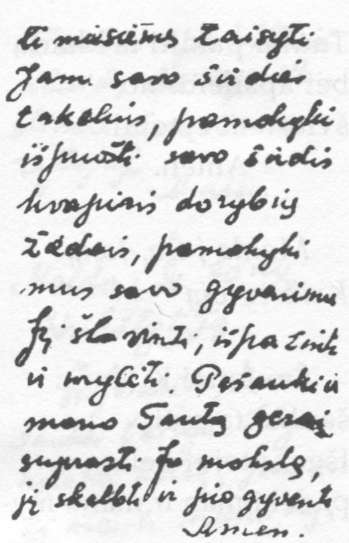 ti mūsiems taisyti
Jam savo širdies
takelius, pamokyki
išpuošti savo širdis
kvapiais dorybių
žiedais, pamokyki
mus savo gyvenimu
Jį šlovinti, išpažinti
ir mylėti. Pašauki ir
mano Tautą gerai
suprasti Jo mokslą,
jį skelbti ir juo gyventi
Amen.